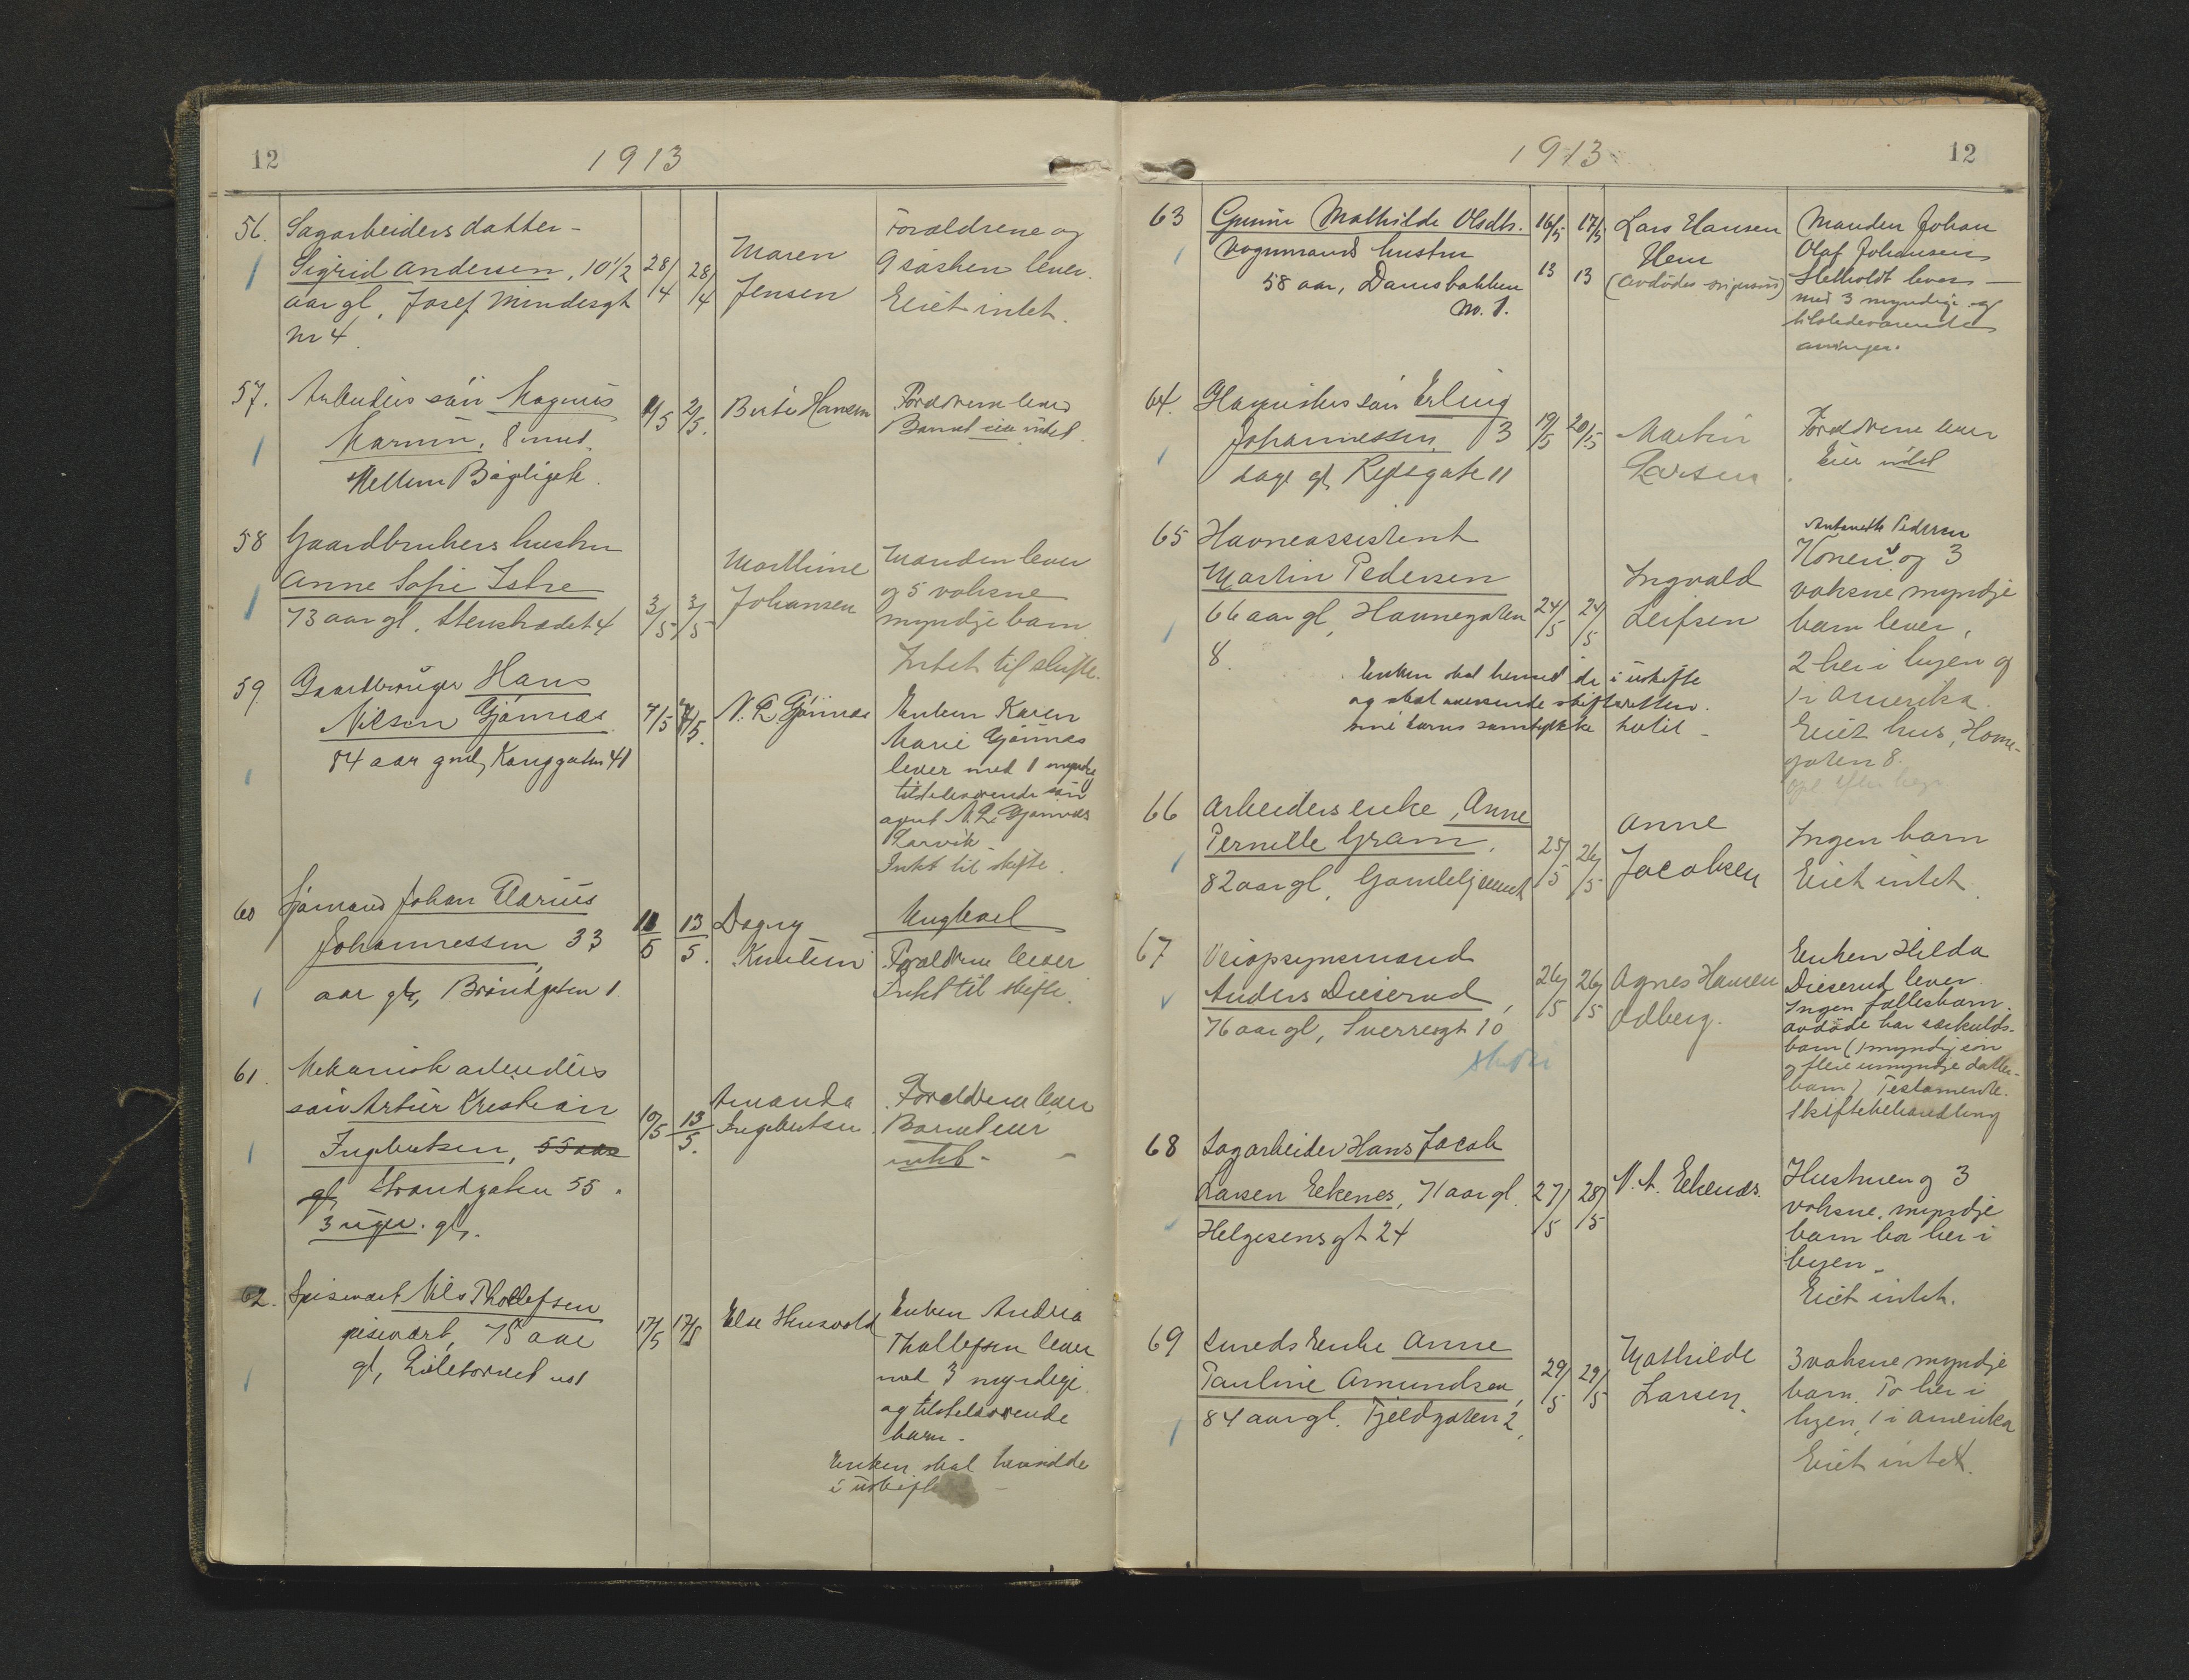 12
1913
56. Sagarbeiders datter -
Sigrid Andersen, 10 1/2
aar gl, Josef Mindesgt
Nr 4.
28/4
28/4
Maren
Jensen
Forældrene og
9 søsken lever.
Eiiet intet.
57. Arbeiders søn Magnus
8 mnd.
Mellem
2/5.
Berte Hansen
Forældrene lever
Barnet eier intet.
58 Gaardbrukers hustru
Anne Sofie Istre
73 aar gl, Stenstrædet 4
3/5
3/5
Marthine
Johansen
Manden lever
og 5 voksne
myndje barn
Intet til skifte.
59. Gaardbruger Hans
Nilsen Gjønnæs
84 aar gml, Konggaten 41
7/5
7/5.
N. L. Gjønnæs
Enken Karen
Marie Gjønnæs
lever med 1 myndig
tilstedeværende søn
agent N. L. Gjønnæs
Larvik.
Intet til skifte.
60 Sjømand Johan Elarius
Johannessen, 33
aar gl, Brøndgaten 1.
11/5
13/5.
Dagny
Knutsen
Ungkarl
Forældrene lever
Intet til skifte.
61. Mekanisk arbeiders
søn Artur Kristian
Ingebretsen, 55 aar
gl, Strandgaten 55.
3 uger. gl.
10/5
13/5.
Amanda
Ingebretsen
Forældrene lever
Barnet eier
intet -
62. Spisevært Nils Thollefsen
spisevært, 75 aar
gl, Lilletorvet no 1
17/5
17/5
Else
Enken Andrea
Thollefsen lever
med 3 myndige
og tilstedeværende
barn -
Enken skal hensidde
i uskifte -
1913
12
63 Gunne Mathilde Olsdtr.
Vognmands hustru
58 aar, Damsbakken
No. 1.
16/5 13
17/5 13
Lars Hansen
Hem
(avdødes svigersøn)
Manden Johan
Olaf Johansen
Hetholdt lever -
med 3 myndige og
tilstedeværende
arvinger.
64. søn Erling
Johannessen, 3
dage gl, Reipsgate 11
19/5
20/5
Martin
Larsen
Forældrene lever
Eier intet
65 Havneassistent
Martin Pedersen
66 aar gl, Havnegaten
8.
24/5
24/5
Ingvald
Leifsen
Antonette Pedersen
Konen og 3
voksne myndje
barn lever,
2 her i byen og
1 i Amerika.
Eiiet hus, Havne-
gaten 8.
Enken skal hensidde i uskifte
og skal indsende skifteretten
sine barns samtykke hertil -
66 Arbeiders enke, Anne
Pernille Gram,
82 aar gl, Gamlehjemmet
25/5
26/5
Anne
Jacobsen
Ingen barn
Eiiet intet.
67 Veiopsynsmand
Anders Dieserud,
76 aar gl, Sverresgt 10
26/5
26/5
Agnes Hansen
Odberg.
Enken Hilda
Dieserud lever
Ingen fællesbarn.
avdøde har særkulds-
barn (1 myndig søn
og flere umyndje datter-
barn) Testamente.
Skiftebehandling
68 Sagarbeider Hans Jacob
Larsen Eekenes, 71 aar gl.
Helgesens gt 24
27/5
28/5
N. A. Eekenæs.
Hustruen og 3
voksne, myndje
barn bor her i
byen -
Eiiet intet.
69 Smeds Enke Anne
Pauline Amundsen,
84 aar gl. Fjeldgaten 2,
29/5
29/5
Mathilde
Larsen.
3 voksne myndje
barn. To her i
byen, 1 i Amerika
Eiiet intet.